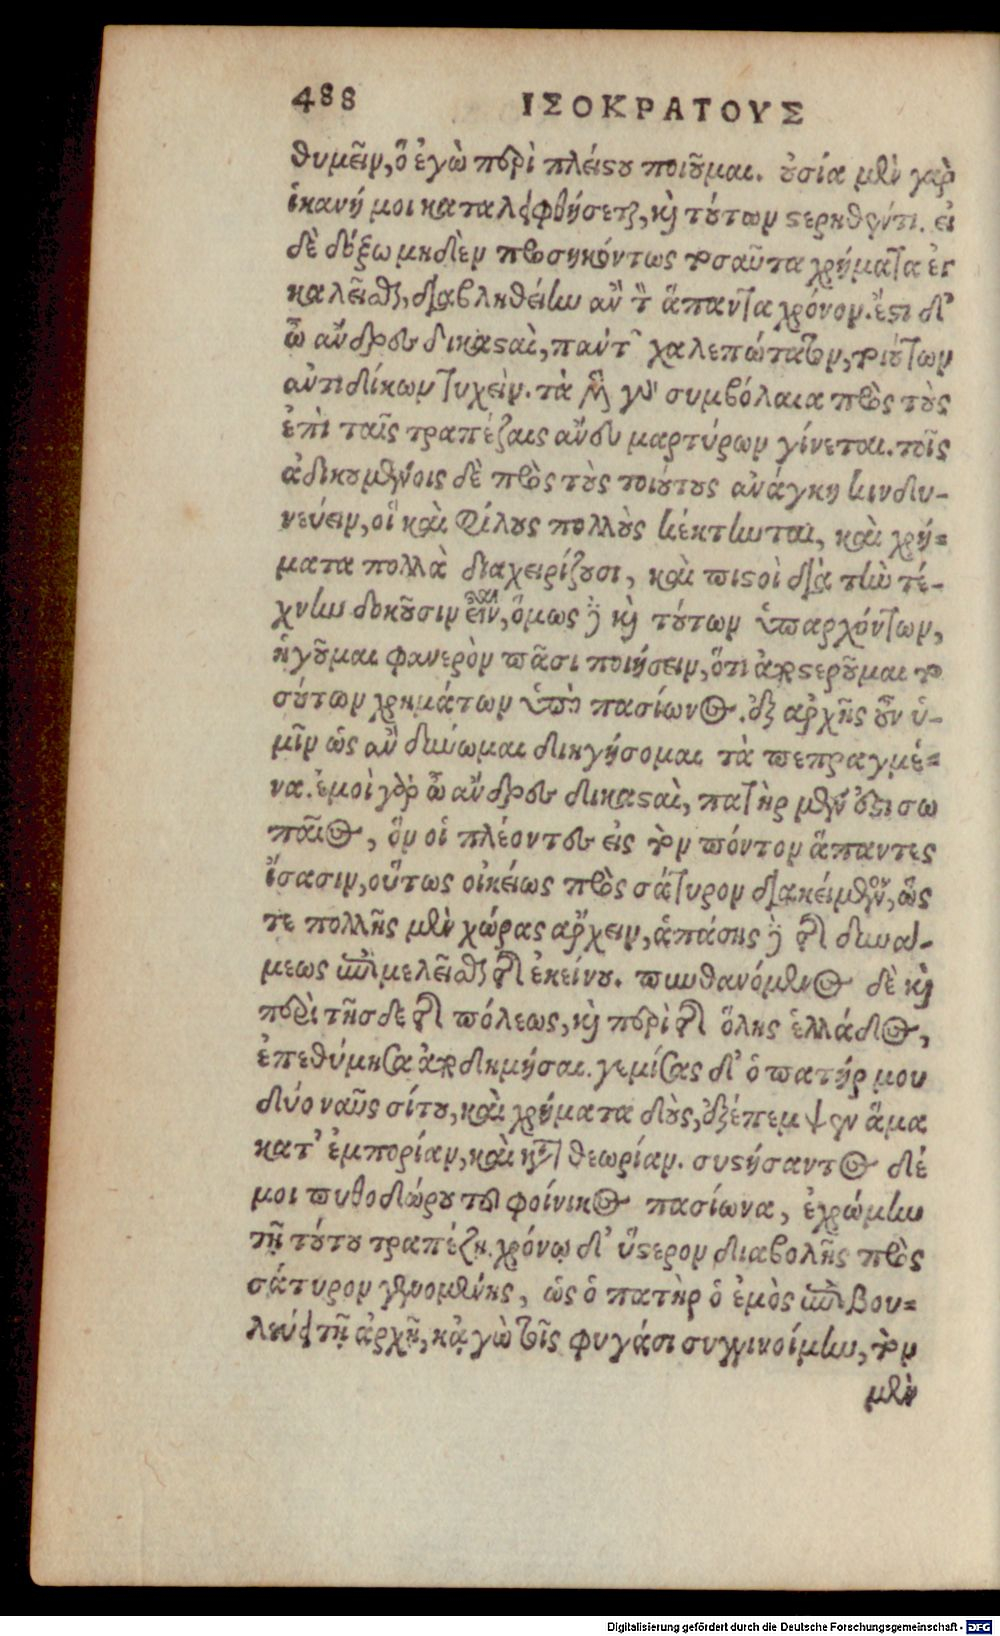 488 ΙΣΟΚΡΑΤΟΥΣ
θυμεῖν, ὃ ἐγὼ περὶ πλείστου ποιοῦμαι. οὐσία μὲν γὰρ
ἱκανή μοι καταλειφθήσεται, καὶ τούτων στερηθέντι. εἰ
δὲ δόξω μηδὲν προσηκόντως τοσαῦτα χρήματα ἐγ
καλεῖσθαι, διαβληθείην ἂν τὸν ἅπαντα χρόνον. ἔστι δ'
ὦ ἄνδρες δικασταὶ, πάντων χαλεπώτατον, τοιούτων
ἀντιδίκων τυχεῖν. τὰ μὲν γὰρ συμβόλαια πρὸς τοὺς
ἐπὶ ταῖς τραπέζαις ἄνευ μαρτύρων γίνεται. τοῖς
ἀδικουμένοις δὲ πρὸς τοὺς τοιούτους ἀνάγκη κινδυ-
νεύειν, οἳ καὶ φίλους πολλοὺς κέκτηνται, καὶ χρή-
ματα πολλὰ διαχειρίζουσι, καὶ πιστοὶ διὰ τὴν τέ-
χνην δοκοῦσιν εἶναι, ὅμως δὲ καὶ τούτων ὑπαρχόντων,
ἡγοῦμαι φανερὸν πᾶσι ποιήσειν, ὅτι ἀποστεροῦμαι το
σούτων χρημάτων ὑπὸ πασίωνος. ἐξ ἀρχῆς οὖν ὑ-
μῖν ὡς ἂν δύνωμαι διηγήσομαι τὰ πεπραγμέ-
να. ἐμοὶ γὰρ ὦ ἄνδρες δικασταὶ, πατὴρ μέν ἐστι σω
παῖος, ὃν οἱ πλέοντες εἰς τὸν πόντον ἅπαντες
ἴσασιν, οὕτως οἰκείως πρὸς σάτυρον διακείμενον, ὥς
τε πολλῆς μὲν χώρας ἄρχειν, ἁπάσης δὲ τῆς δυνά-
μεως ἐπιμελεῖσθαι τῆς ἐκείνου. πυνθανόμενος δὲ καὶ
περὶ τῆσδε τῆς πόλεως, καὶ περὶ τῆς ὅλης ἑλλάδος,
ἐπεθύμησα ἀποδημῆσαι. γεμίσας δ' ὁ πατήρ μου
δύο ναῦς σίτου, καὶ χρήματα δοὺς, ἐξέπεμψεν ἅμα
κατ' ἐμπορίαν, καὶ κατὰ θεωρίαν. συστήσαντος δέ
μοι πυθοδώρου τοῦ φοίνικος πασίωνα, ἐχρώμην
τῇ τούτου τραπέζῃ. χρόνῳ δ' ὕστερον διαβολῆς πρὸς
σάτυρον γενομένης, ὡς ὁ πατὴρ ὁ ἐμὸς ἐπιβου-
λεύει τῇ ἀρχῇ, κᾀγὼ τοῖς φυγάσι συγγινοίμην, τὸν
μὲν
Digitalisierung gefördert durch die Deutsche Forschungsgemeinschaft - DFG